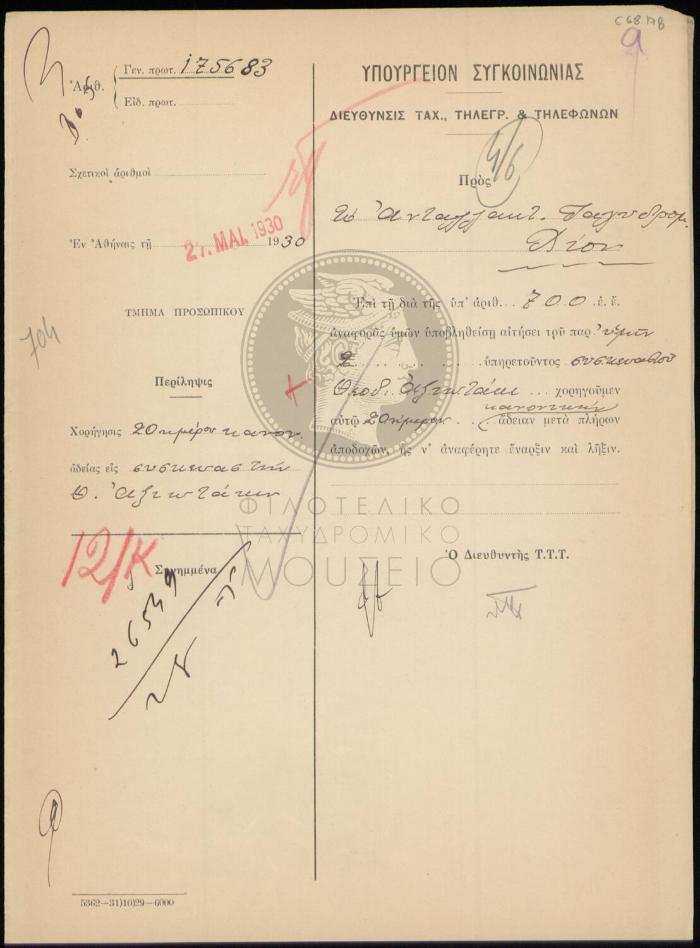 C68.178
9
Ἀριθ.
Γεν. πρωτ. 175683
Εἰδ. πρωτ.
Σχετικοὶ ἀριθμοὶ
Ἐν Ἀθήναις τῇ 27. ΜΑΙ. 1930 1930
704
ΤΜΗΜΑ ΠΡΟΣΩΠΙΚΟΥ
Περίληψις
Χορήγησις 20ημέρου κανον.
ἀδείας εἰς συσκευαστὴν
Θ. Ἀξιωτάκην
12/Κ
Συνημμένα
26549
28
5362—31)10)29—6000
ΥΠΟΥΡΓΕΙΟΝ ΣΥΓΚΟΙΝΩΝΙΑΣ
ΔΙΕΥΘΥΝΣΙΣ ΤΑΧ., ΤΗΛΕΓΡ. & ΤΗΛΕΦΩΝΩΝ
4/6
Πρὸς
τὸ Ἀνταλλακτ. Ταχυδρομ.
Ἐπὶ τῇ διὰ τῆς ὑπ' ἀριθ. 700 ἐ. ἔ.
ἀναφορᾶς ὑμῶν ὑποβληθείσῃ αἰτήσει τοῦ παρ' ὑμῖν
ὑπηρετοῦντος συσκευαστοῦ
Θεοδ. Ἀξιωτάκη χορηγοῦμεν
κανονικὴν
αὐτῷ 20ήμερον ἄδειαν μετὰ πλήρων
ἀποδοχῶν, ἧς ν' ἀναφέρητε ἔναρξιν καὶ λῆξιν.
Ὁ Διευθυντὴς Τ.Τ.Τ.
ΦΙΛΟΤΕΛΙΚΟ
ΤΑΧΥΔΡΟΜΙΚΟ
ΜΟΥΣΕΙΟ